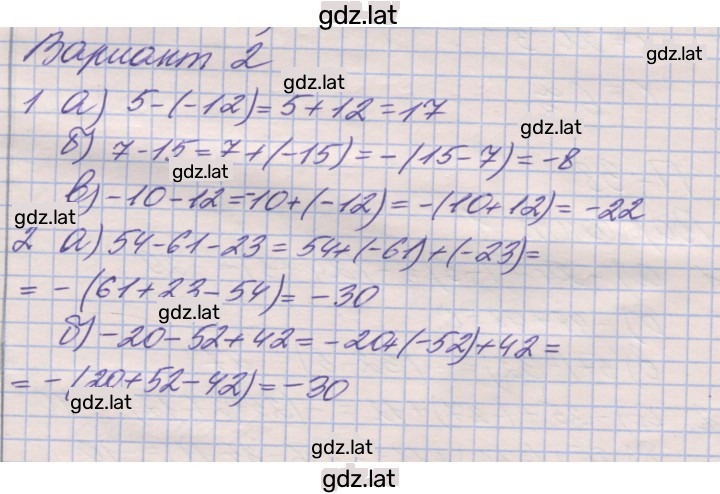 gdz.lat
Вариант 2
gdz.lat
gdz.lat
1 а) 5-(-12)=5+12=17
gdz.lat
б) 7-15=7+(-15)=-(15-7)=-8
gdz.lat
в) -10-12=-10+(-12)=-(10+12)=-22
gdz.lat
2 а) 54-61-23=54+(-61)+(-23)=
=-(61+23-54)=-30
gdz.lat
б) -20-52+42=-20+(-52)+42=
=-(20+52-42)=-30
gdz.lat
gdz.lat
gdz.lat